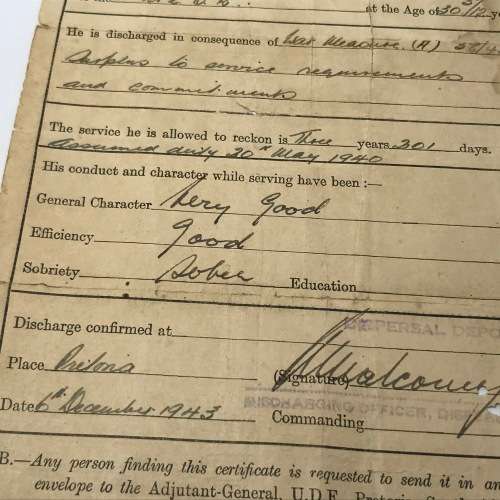 at the Age of 30 3/12 ye
He is discharged in consequence of War Measure (A) 58/4
Surplus to service requirements
and commitments
The service he is allowed to reckon is Three years 201 days.
Assumed duty 20th May 1940
His conduct and character while serving have been :—
General Character Very Good
Efficiency Good
Sobriety Sober Education
Discharge confirmed at
DISPERSAL DEPO
Place Pretoria
(Signature)
DISCHARGING OFFICER, DISPE
Date 6th December 1943 Commanding
B.—Any person finding this certificate is requested to send it in an
envelope to the Adjutant-General, U.D.F.